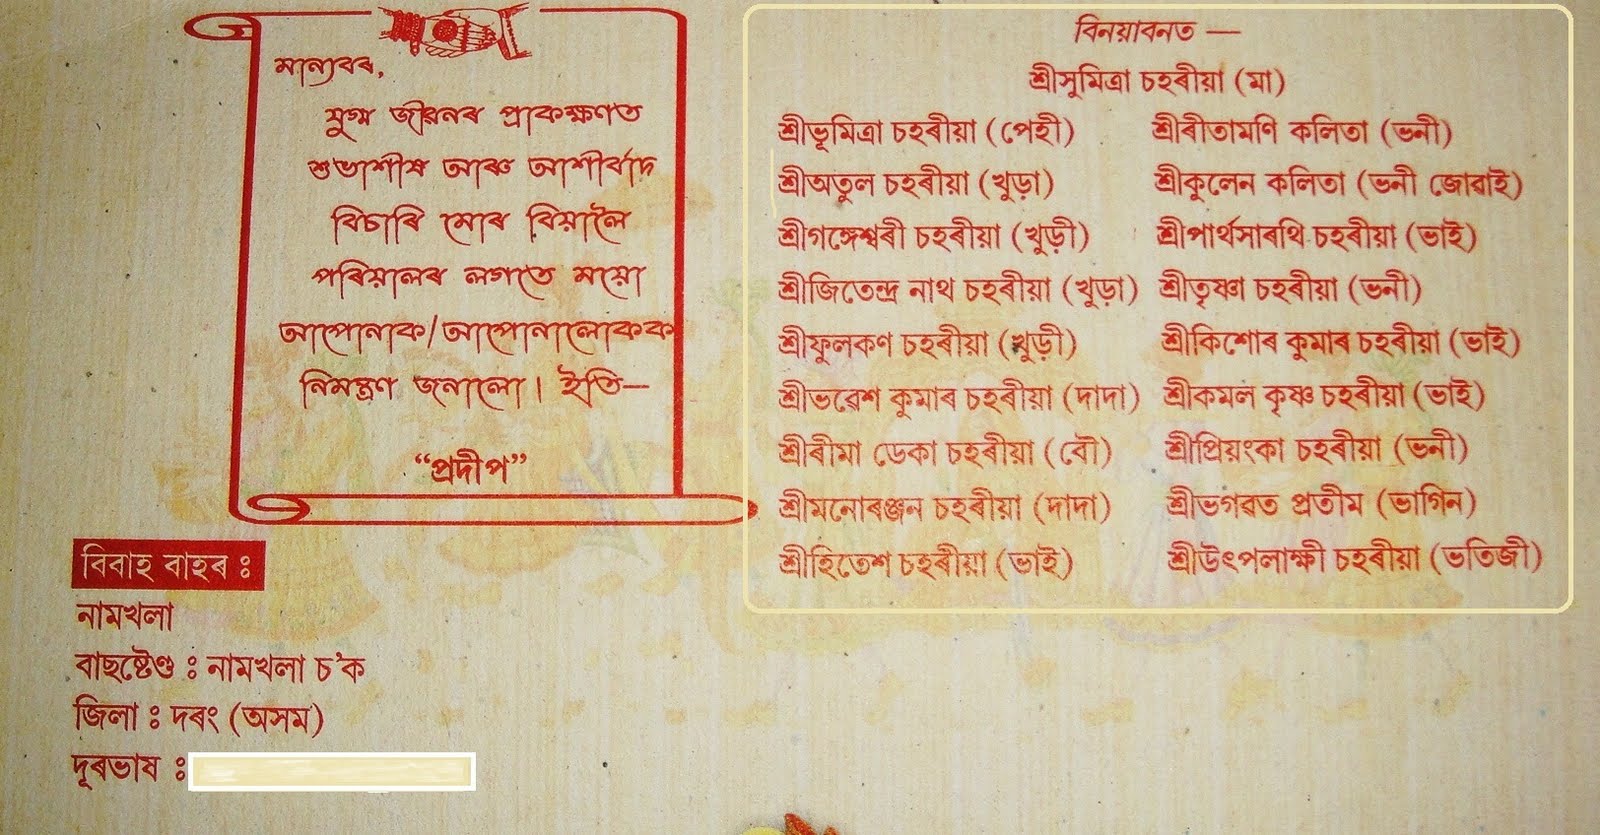 মান্যবৰ,
যুগ্ম জীৱনৰ প্ৰাকক্ষণত
শুভাশীষ আৰু আশীৰ্বাদ
বিচাৰি মোৰ বিয়ালৈ
পৰিয়ালৰ লগতে ময়ো
আপোনাক/আপোনালোকক
নিমন্ত্ৰণ জনালো। ইতি—
“প্ৰদীপ”
বিবাহ বাহৰ ঃ
নামখলা
বাছষ্টেণ্ড ঃ নামখলা চ'ক
জিলা ঃ দৰং (অসম)
দূৰভাষ ঃ
বিনয়াবনত —
শ্ৰীসুমিত্ৰা চহৰীয়া (মা)
শ্ৰীভূমিত্ৰা চহৰীয়া (পেহী)
শ্ৰীঅতুল চহৰীয়া (খুড়া)
শ্ৰীগঙ্গেশ্বৰী চহৰীয়া (খুড়ী)
শ্ৰীজিতেন্দ্ৰ নাথ চহৰীয়া (খুড়া)
শ্ৰীফুলকণ চহৰীয়া (খুড়ী)
শ্ৰীভৱেশ কুমাৰ চহৰীয়া (দাদা)
শ্ৰীৰীমা ডেকা চহৰীয়া (বৌ)
শ্ৰীমনোৰঞ্জন চহৰীয়া (দাদা)
শ্ৰীহিতেশ চহৰীয়া (ভাই)
শ্ৰীৰীতামণি কলিতা (ভনী)
শ্ৰীকুলেন কলিতা (ভনী জোৱাই)
শ্ৰীপাৰ্থসাৰথি চহৰীয়া (ভাই)
শ্ৰীতৃষ্ণা চহৰীয়া (ভনী)
শ্ৰীকিশোৰ কুমাৰ চহৰীয়া (ভাই)
শ্ৰীকমল কৃষ্ণ চহৰীয়া (ভাই)
শ্ৰীপ্ৰিয়ংকা চহৰীয়া (ভনী)
শ্ৰীভগৱত প্ৰতীম (ভাগিন)
শ্ৰীউৎপলাক্ষী চহৰীয়া (ভতিজী)